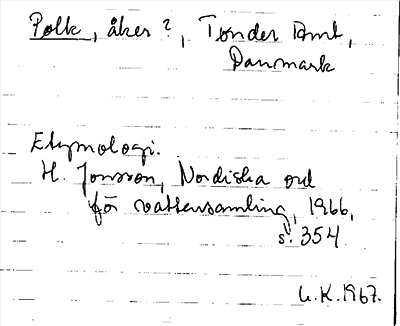 Polk, åker?, Tønder Amt,
Danmark
Etymologi.
H. Jonsson, Nordiska ord
för vattensamling, 1966,
s. 354.
U.K. 1967.